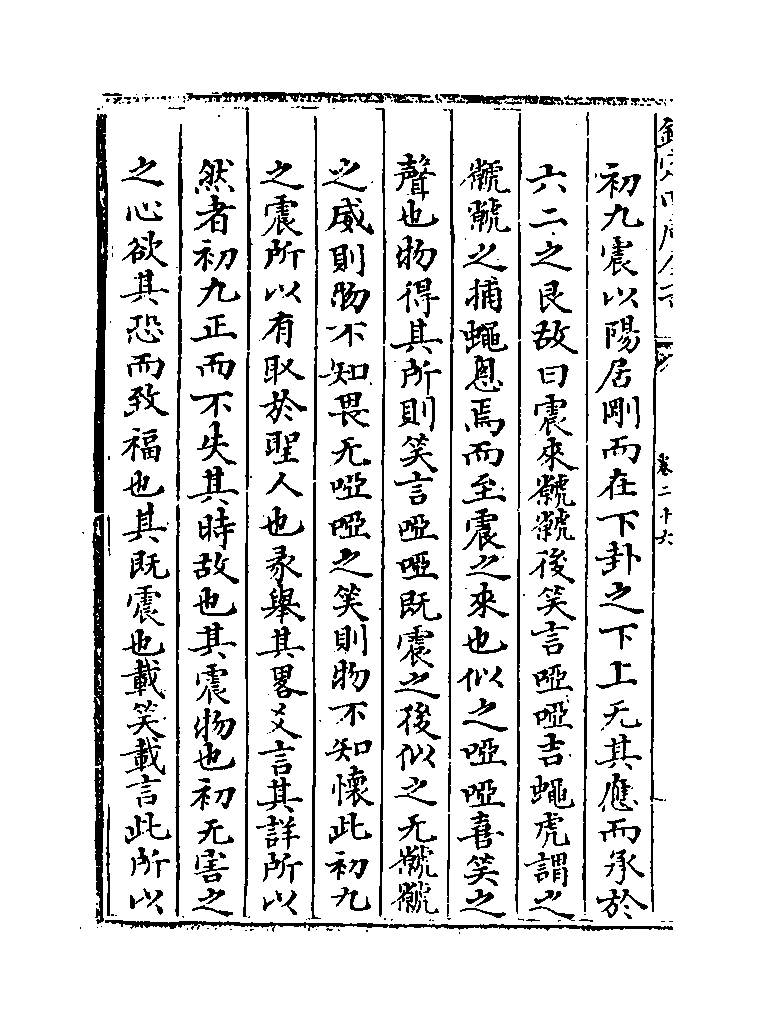 欽定四庫全書
卷二十六
初九震以陽居剛而在下卦之下上无其應而承於
六二之艮故曰震來虩虩後笑言啞啞吉蠅虎謂之
虩虩之捕蠅恩焉而至震之來也似之啞啞喜笑之
聲也物得其所則笑言啞啞既震之後似之无虩虩
之威則物不知畏无啞啞之笑則物不知懷此初九
之震所以有取於聖人也彖舉其畧爻言其詳所以
然者初九正而不失其時故也其震物也初无害之
之心欲其恐而致福也其既震也載笑載言此所以